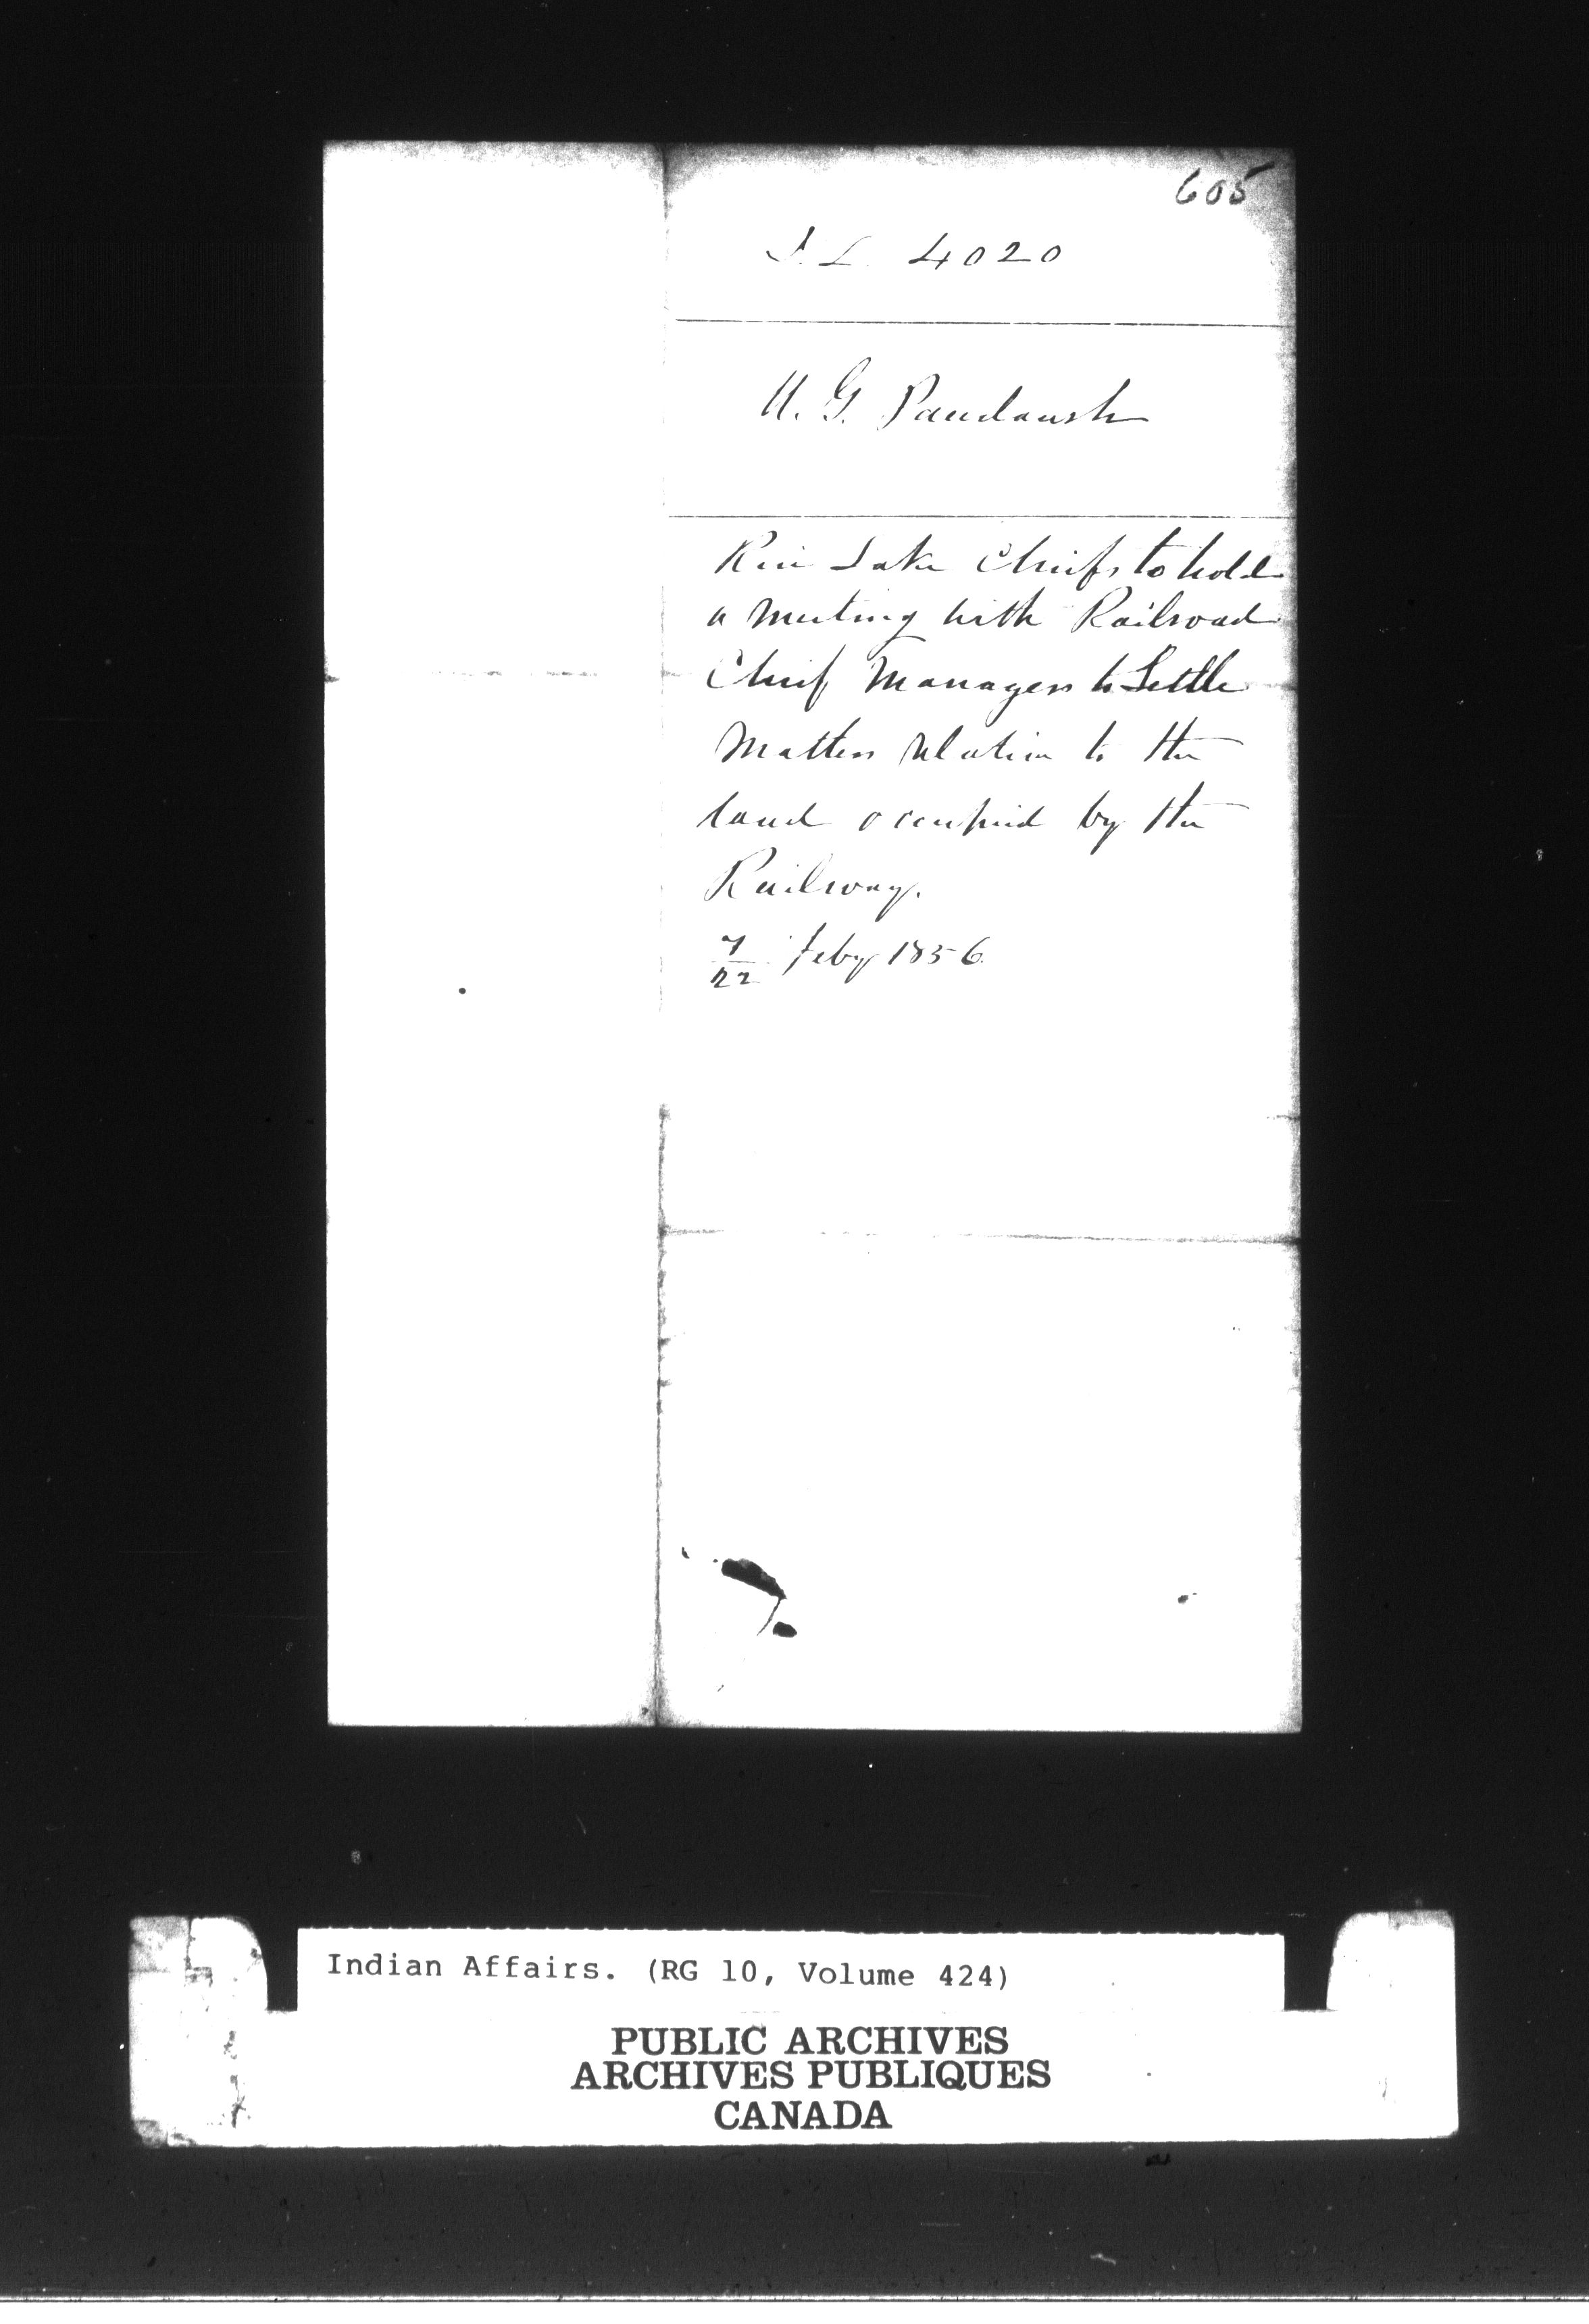 605
I. L. 4020
M. G. Paudaush
Rice Lake Chiefs to hold
a meeting with Railroad
Chief Managers to Settle
Matters relation to the
land occupied by the
Railway.
7/22 Feby 1856.
Indian Affairs. (RG 10, Volume 424)
PUBLIC ARCHIVES
ARCHIVES PUBLIQUES
CANADA